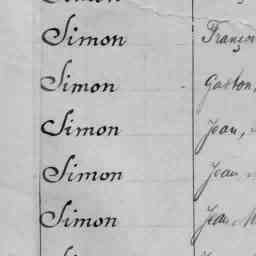 Simon Franço
Simon Gaston,
Simon Jean,
Simon Jean
Simon Jean M